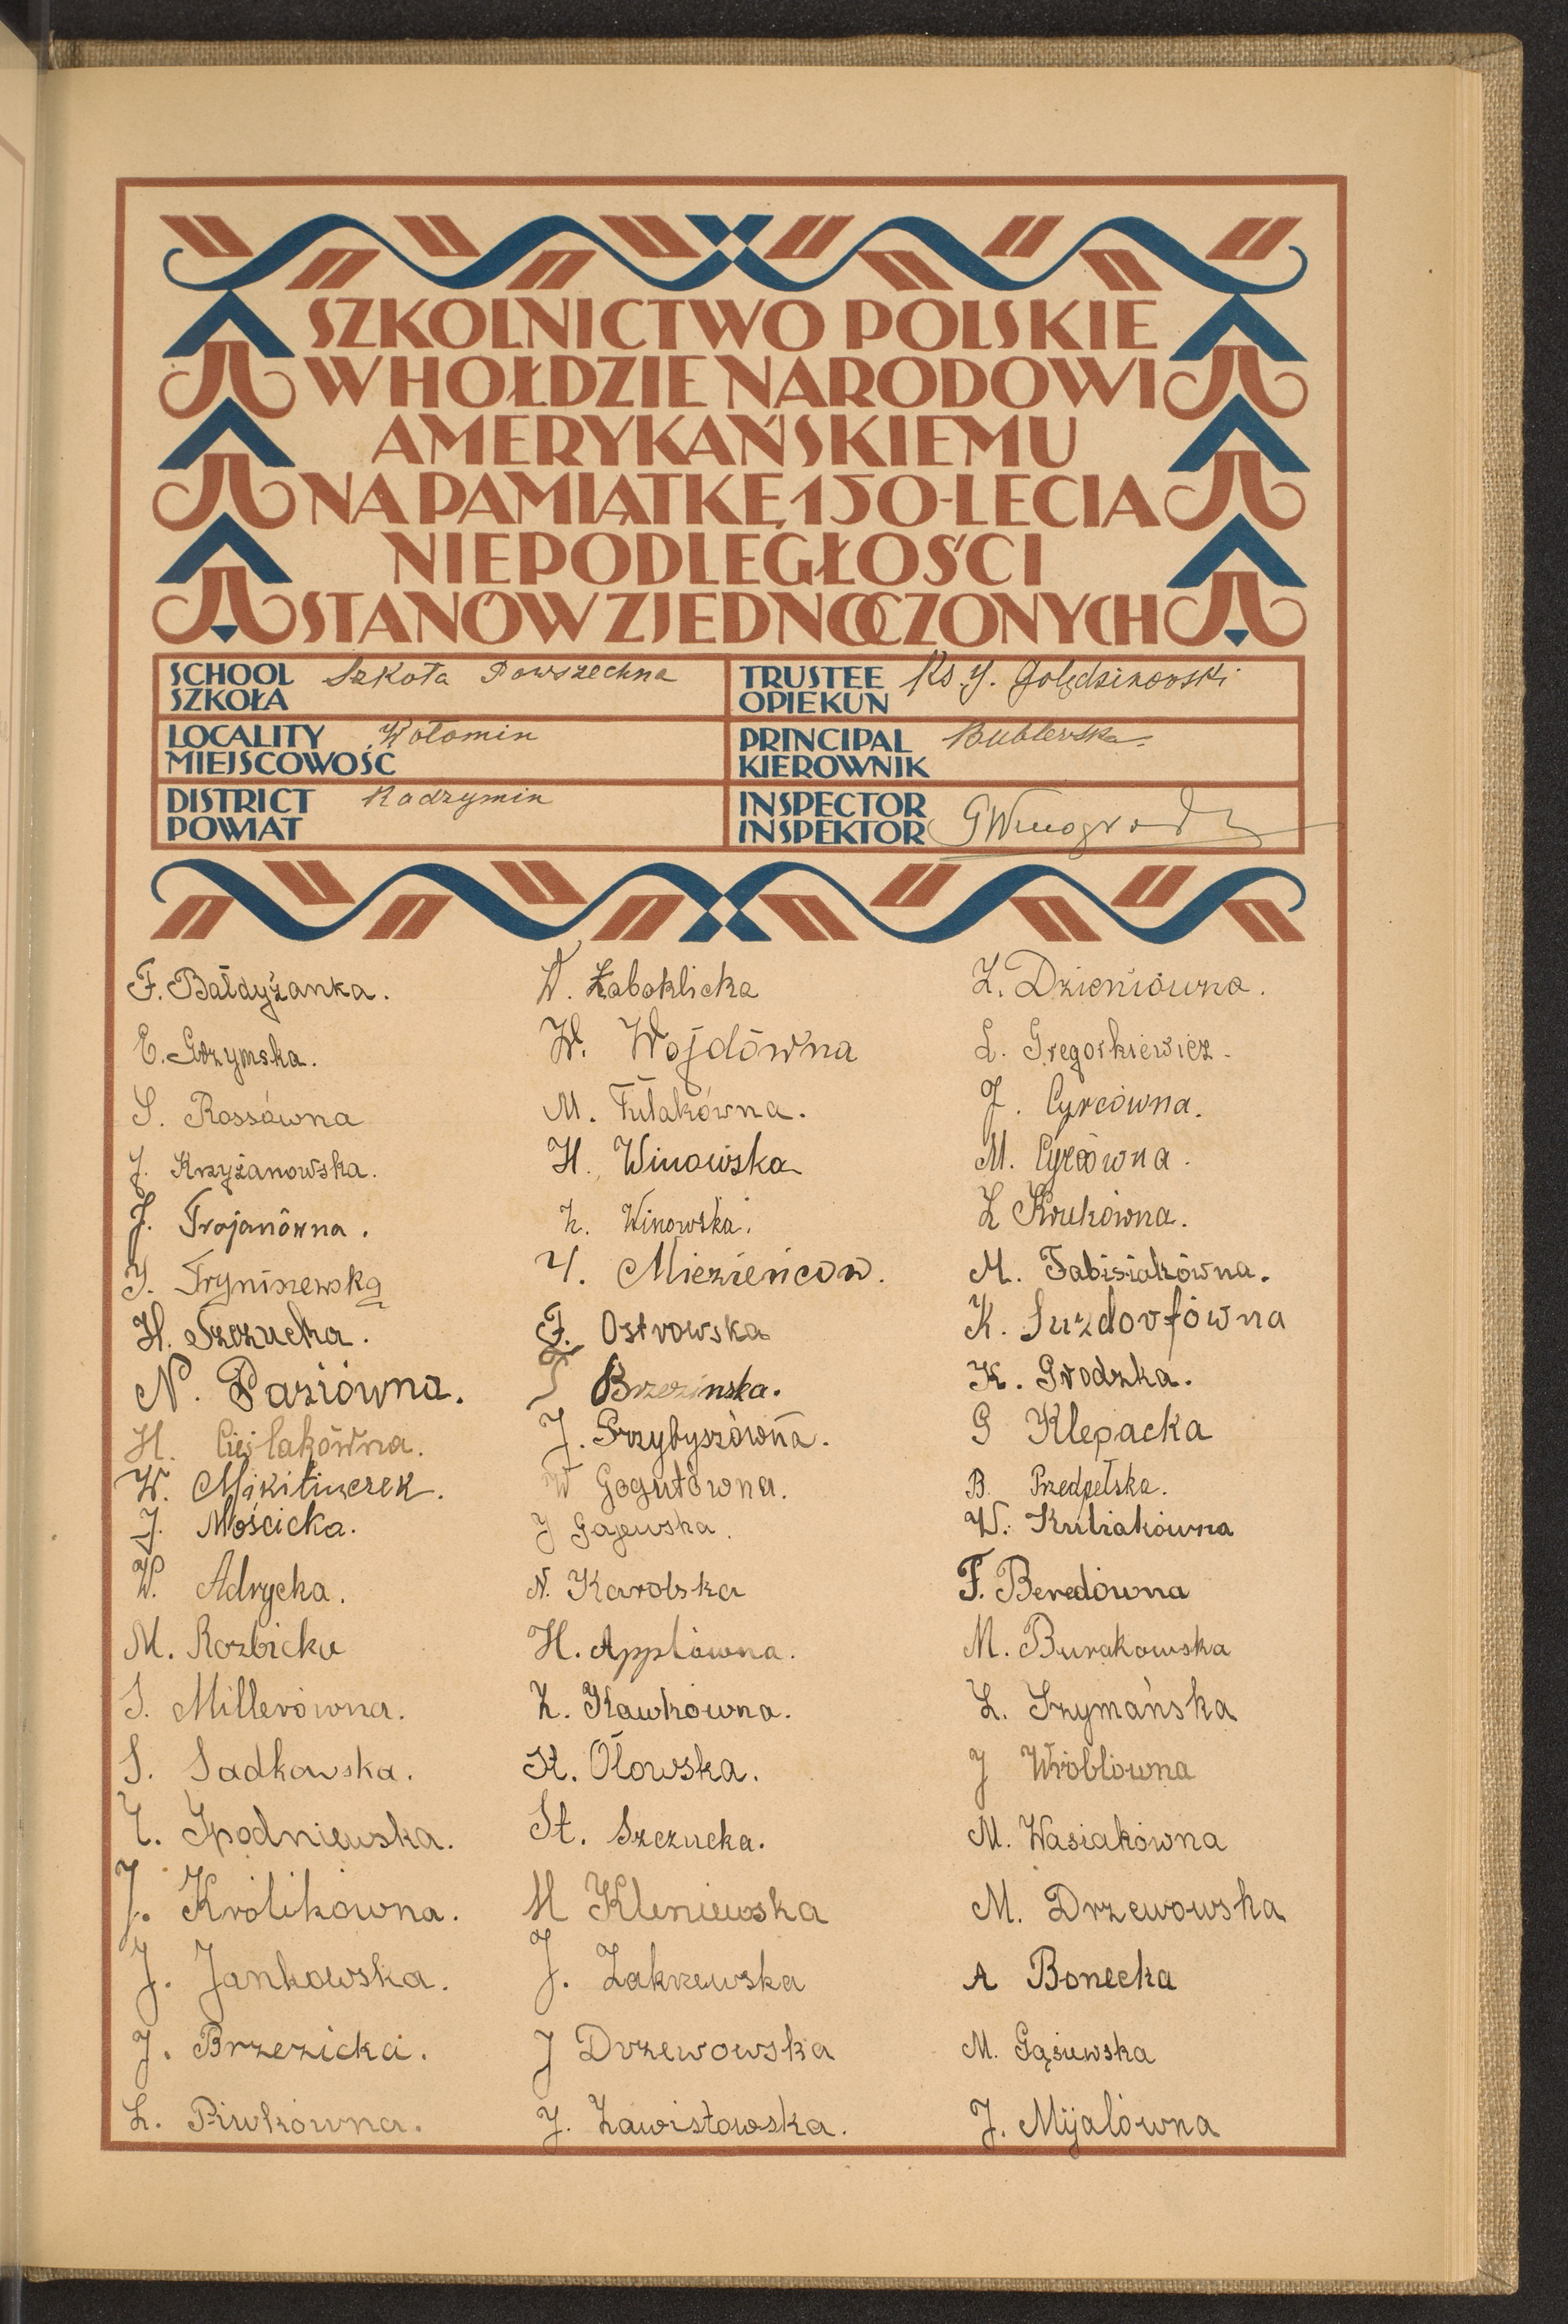 SZKOLNICTWO POLSKIE
W HOŁDZIE NARODOWI
AMERYKAŃSKIEMU
NA PAMIĄTKĘ 150-LECIA
NIEPODLEGŁOŚCI
STANÓW ZJEDNOCZONYCH
SCHOOL Szkoła Powszechna
SZKOŁA
TRUSTEE Ks. J. Golędzinowski
OPIEKUN
LOCALITY Wołomin
MIEJSCOWOŚĆ
PRINCIPAL Bublewska
KIEROWNIK
DISTRICT Radzymin
POWIAT
INSPECTOR
INSPEKTOR
F. Bałdyżanka.
E. Gozymska.
S. Rossówna
J. Krzyżanowska.
J. Trojanówna.
J. Tryniszewska
H. Szczucka.
N. Paziówna.
H. Cieślakówna.
W. Mikitiuczek.
J. Mościcka.
W. Adrycka.
M. Rozbicka
S. Millerówna.
S. Sadkowska.
Z. Spodniewska.
J. Królikówna.
J. Jankowska.
J. Brzezicka.
Z. Piwkówna.
W. Żaboklicka
W. Wojdówna
M. Fułakówna.
H. Winowska
Z. Winowska.
Y. Miezieńcow.
F. Ostrowska
Brzezinska.
J. Przybyszówna.
W Gogutówna.
J Gajewska.
N. Karolska
H. Applówna.
Z. Kawkówna.
H. Ołowska.
St. Szczucka.
M Kleniewska
J. Zakrzewska
J Drzewowska
J. Zawistowska.
Z. Dzieniówna.
L. Gregorkiewicz.
J. Cyrcówna.
M. Cyrcówna.
Z Krukówna.
M. Fabisiakówna.
K. Suzdorfówna
K. Grodzka.
G Klepacka
B. Przedpełska.
W. Kubiakówna
F. Beredówna
M. Burakowska
Z. Szymańska
J Wróblówna
M. Wasiakówna
M. Drzewowska
A Bonecka
M. Gąsiewska
J. Mijalówna